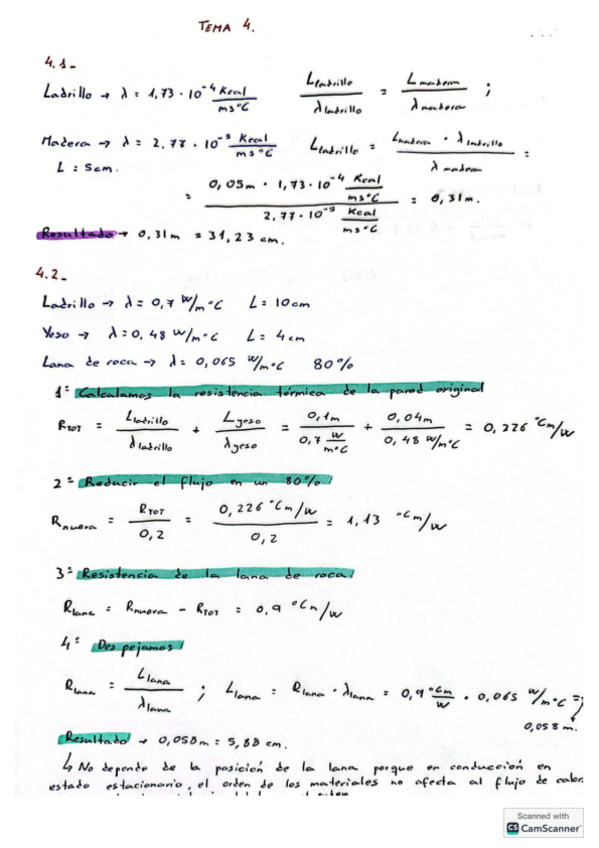 TEMA 4.
4.1-
Ladrillo → λ = 1,73 · 10⁻⁴ Kcal/ms°C    Lladrillo/λladrillo = Lmadera/λmadera ;
Madera → λ = 2,77 · 10⁻⁵ Kcal/ms°C    Lladrillo = Lmadera · λladrillo/λmadera =
L = 5cm.
= 0,05m · 1,73 · 10⁻⁴ Kcal/ms°C / 2,77 · 10⁻⁵ Kcal/ms°C = 0,31m.
Resultado → 0,31m = 31,23 cm.
4.2-
Ladrillo → λ = 0,7 W/m°C    L = 10cm
Yeso → λ = 0,48 W/m°C    L = 4cm
Lana de roca → λ = 0,065 W/m°C    80%
1º Calculamos la resistencia térmica de la pared original
RTOT = Lladrillo/λladrillo + Lyeso/λyeso = 0,1m/0,7 W/m°C + 0,04m/0,48 W/m°C = 0,226 °Cm/W
2º Reducir el flujo en un 80%/
Rnueva = RTOT/0,2 = 0,226 °Cm/W/0,2 = 1,13 °Cm/W
3º Resistencia de la lana de roca/
Rlana = Rnueva - RTOT = 0,9 °Cm/W
4º Despejamos/
Rlana = Llana/λlana ; Llana = Rlana · λlana = 0,9 °Cm/W · 0,065 W/m°C =
0,058m.
Resultado → 0,058m = 5,88 cm.
↳ No depende de la posición de la lana porque en conducción en
estado estacionario, el orden de los materiales no afecta al flujo de calor.
Scanned with
CS CamScanner